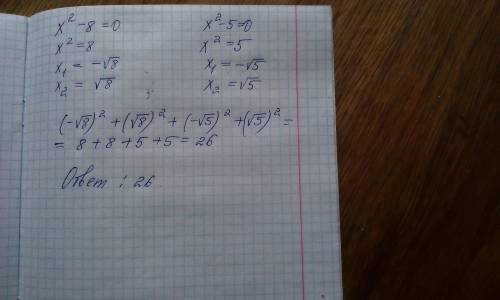 x² - 8 = 0
x² = 8
x₁ = -√8
x₂ = √8
x² - 5 = 0
x² = 5
x₁ = -√5
x₂ = √5
(-√8)² + (√8)² + (-√5)² + (√5)² =
= 8 + 8 + 5 + 5 = 26
Ответ : 26.